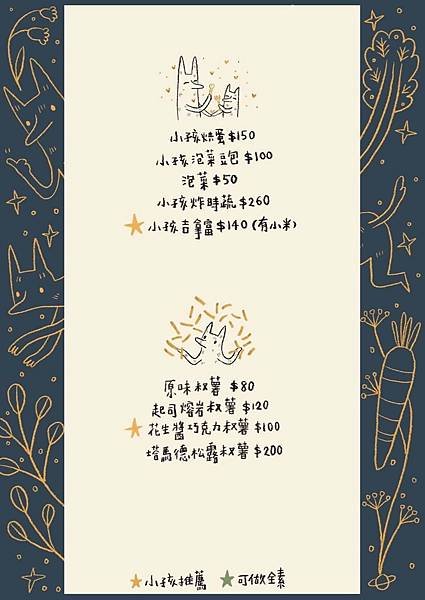 小孩烘蛋$150
小孩泡菜豆包$100
泡菜$50
小孩炸時蔬$260
★小孩吉拿富$140(有小米)
原味叔薯 $80
起司熔岩叔薯$120
★花生醬巧克力叔薯$100
塔馬德松露叔薯$200
★小孩推薦 ★可做全素